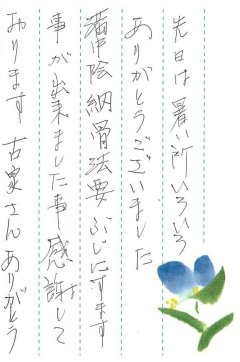 先日は暑い所いろいろ
ありがとうございました
満陰納骨法要ぶじにすます
事が出来ました事感謝して
おります 古家さんありがとう